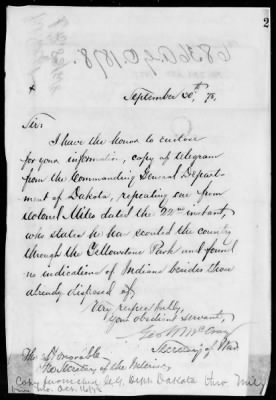 2
6836 A.G.O. 1878.
September 30th, 78.
Sir:
I have the honor to enclose
for your information, copy of telegram
from the Commanding General Depart-
ment of Dakota, repeating one from
Colonel Miles dated the 22nd instant,
who states he has scouted the country
through the Yellowstone Park and found
no indications of Indians besides those
already disposed of.
Very respectfully,
Your obedient servant,
Geo W McCrary
Secretary of War
The Honorable
The Secretary of the Interior
Copy furnished C.G. Dept. Dakota thro. Mil
Oct. 1878